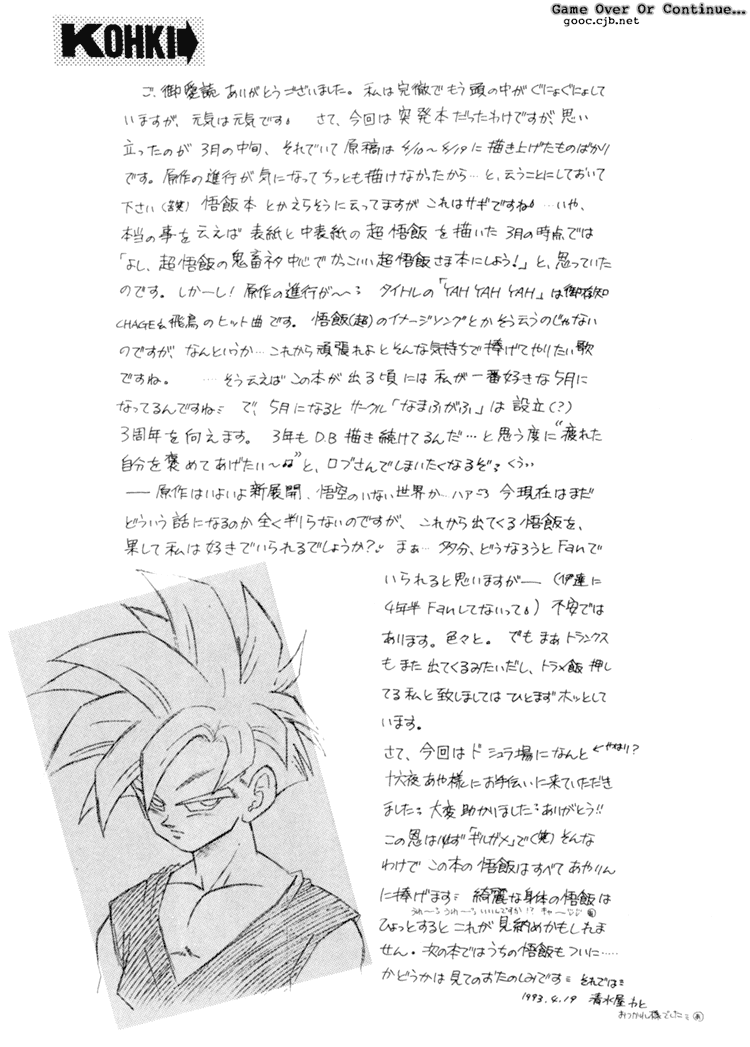 Game Over Or Continue...
gooc.cjb.net
KOHKI
ご御愛読ありがとうございました。私は完徹でもう頭の中がぐにょぐにょして
いますが、元気は元気です。さて、今回は突発本だったわけですが、思い
立ったのが3月の中旬、それでいて原稿は4/10〜4/19に描き上げたものばかり
です。原作の進行が気になってちっとも描けなかったから…と、云うことにしておいて
下さい(笑)悟飯本とかえらそうに云ってますがこれはサギですね。…いや、
本当の事を云えば表紙と中表紙の超悟飯を描いた3月の時点では
「よし、超悟飯の鬼畜ネタ中心でかっこいい超悟飯さま本にしよう!」と、思っていた
のです。しかーし!原作の進行が〜〜 タイトルの「YAH YAH YAH」は御存知
CHAGE&飛鳥のヒット曲です。悟飯(超)のイメージソングとかそう云うのじゃない
のですが、なんというか…これから頑張れよとそんな気持ちで捧げてやりたい歌
ですね。……そう云えばこの本が出る頃には私が一番好きな5月に
なってるんですね で、5月になるとサークル「なまふがふ」は設立(?)
3周年を向えます。3年もD.B描き続けてるんだ…と思う度に"疲れた
自分を褒めてあげたい〜♫"と、口ずさんでしまいたくなるぞ くうっ
――原作はいよいよ新展開、悟空のいない世界か…ハァ 今現在はまだ
どういう話になるのか全く判らないのですが、これから出てくる悟飯を、
果して私は好きでいられるでしょうか? まぁ…多分、どうなろうとFanで
いられると思いますが――(伊達に
4年半Fanしてないって)不安では
あります。色々と。でもまぁトランクス
もまた出てくるみたいだし、トラ×飯押し
てる私と致しましてはひとまずホッとして
います。
さて、今回はド シュラ場になんと ←やねり?
十六夜あや様にお手伝いに来ていただき
ました 大変助かりました ありがとう!!
この恩は必ず「ギルガメ」で(笑)そんな
わけでこの本の悟飯はすべてあやりん
に捧げます 綺麗な身体の悟飯は
ひょっとするとこれが見納めかもしれま
せん。次の本ではうちの悟飯もついに……
かどうかは見てのおたのしみです それでは
1993.4.19 清水屋
おつかれ様でした